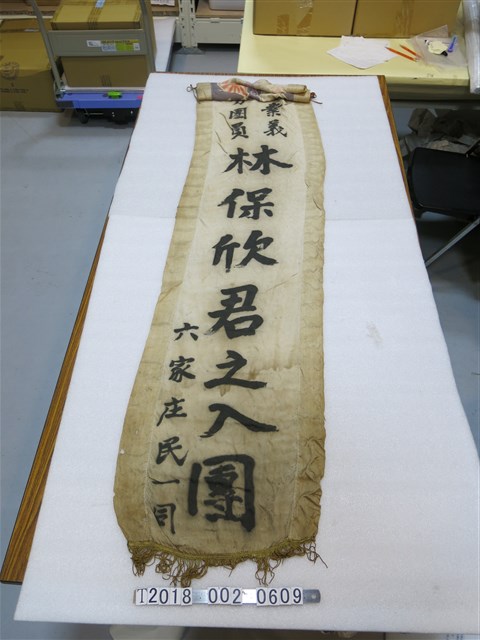 業義
團員
林保欣君之入團
六家庄民一同
T2018 002 0609